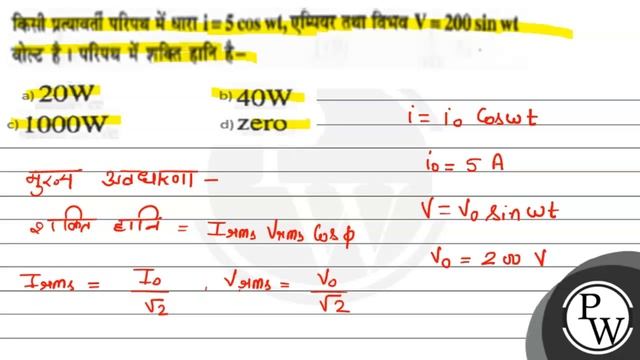 किसी प्रत्यावर्ती परिपथ में धारा i = 5 cos wt, एम्पियर तथा विभव V = 200 sin wt
वोल्ट है। परिपथ में शक्ति हानि है–
a) 20W
b) 40W
c) 1000W
d) zero
i = i₀ Cosωt
i₀ = 5 A
मुख्य अवधारणा –
V = V₀ sin ωt
शक्ति हानि = Irms Vrms Cos ϕ
V₀ = 200 V
Irms = I₀/√2 , Vrms = V₀/√2
PW